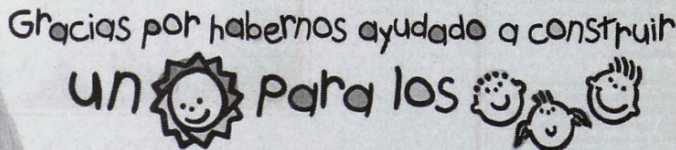 Gracias por habernos ayudado a construir
un para los